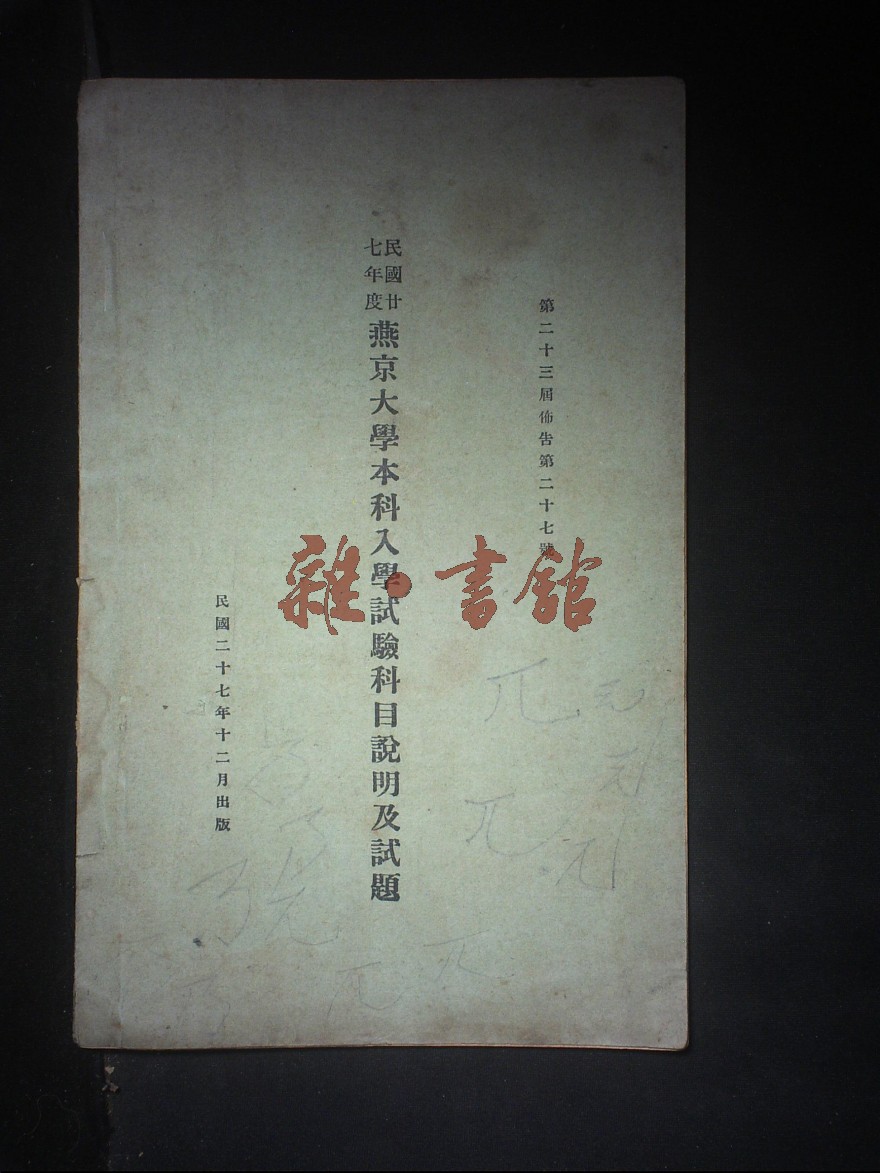 第二十三屆佈告第二十七號
民國廿七年度
燕京大學本科入學試驗科目說明及試題
民國二十七年十二月出版
雜·書館